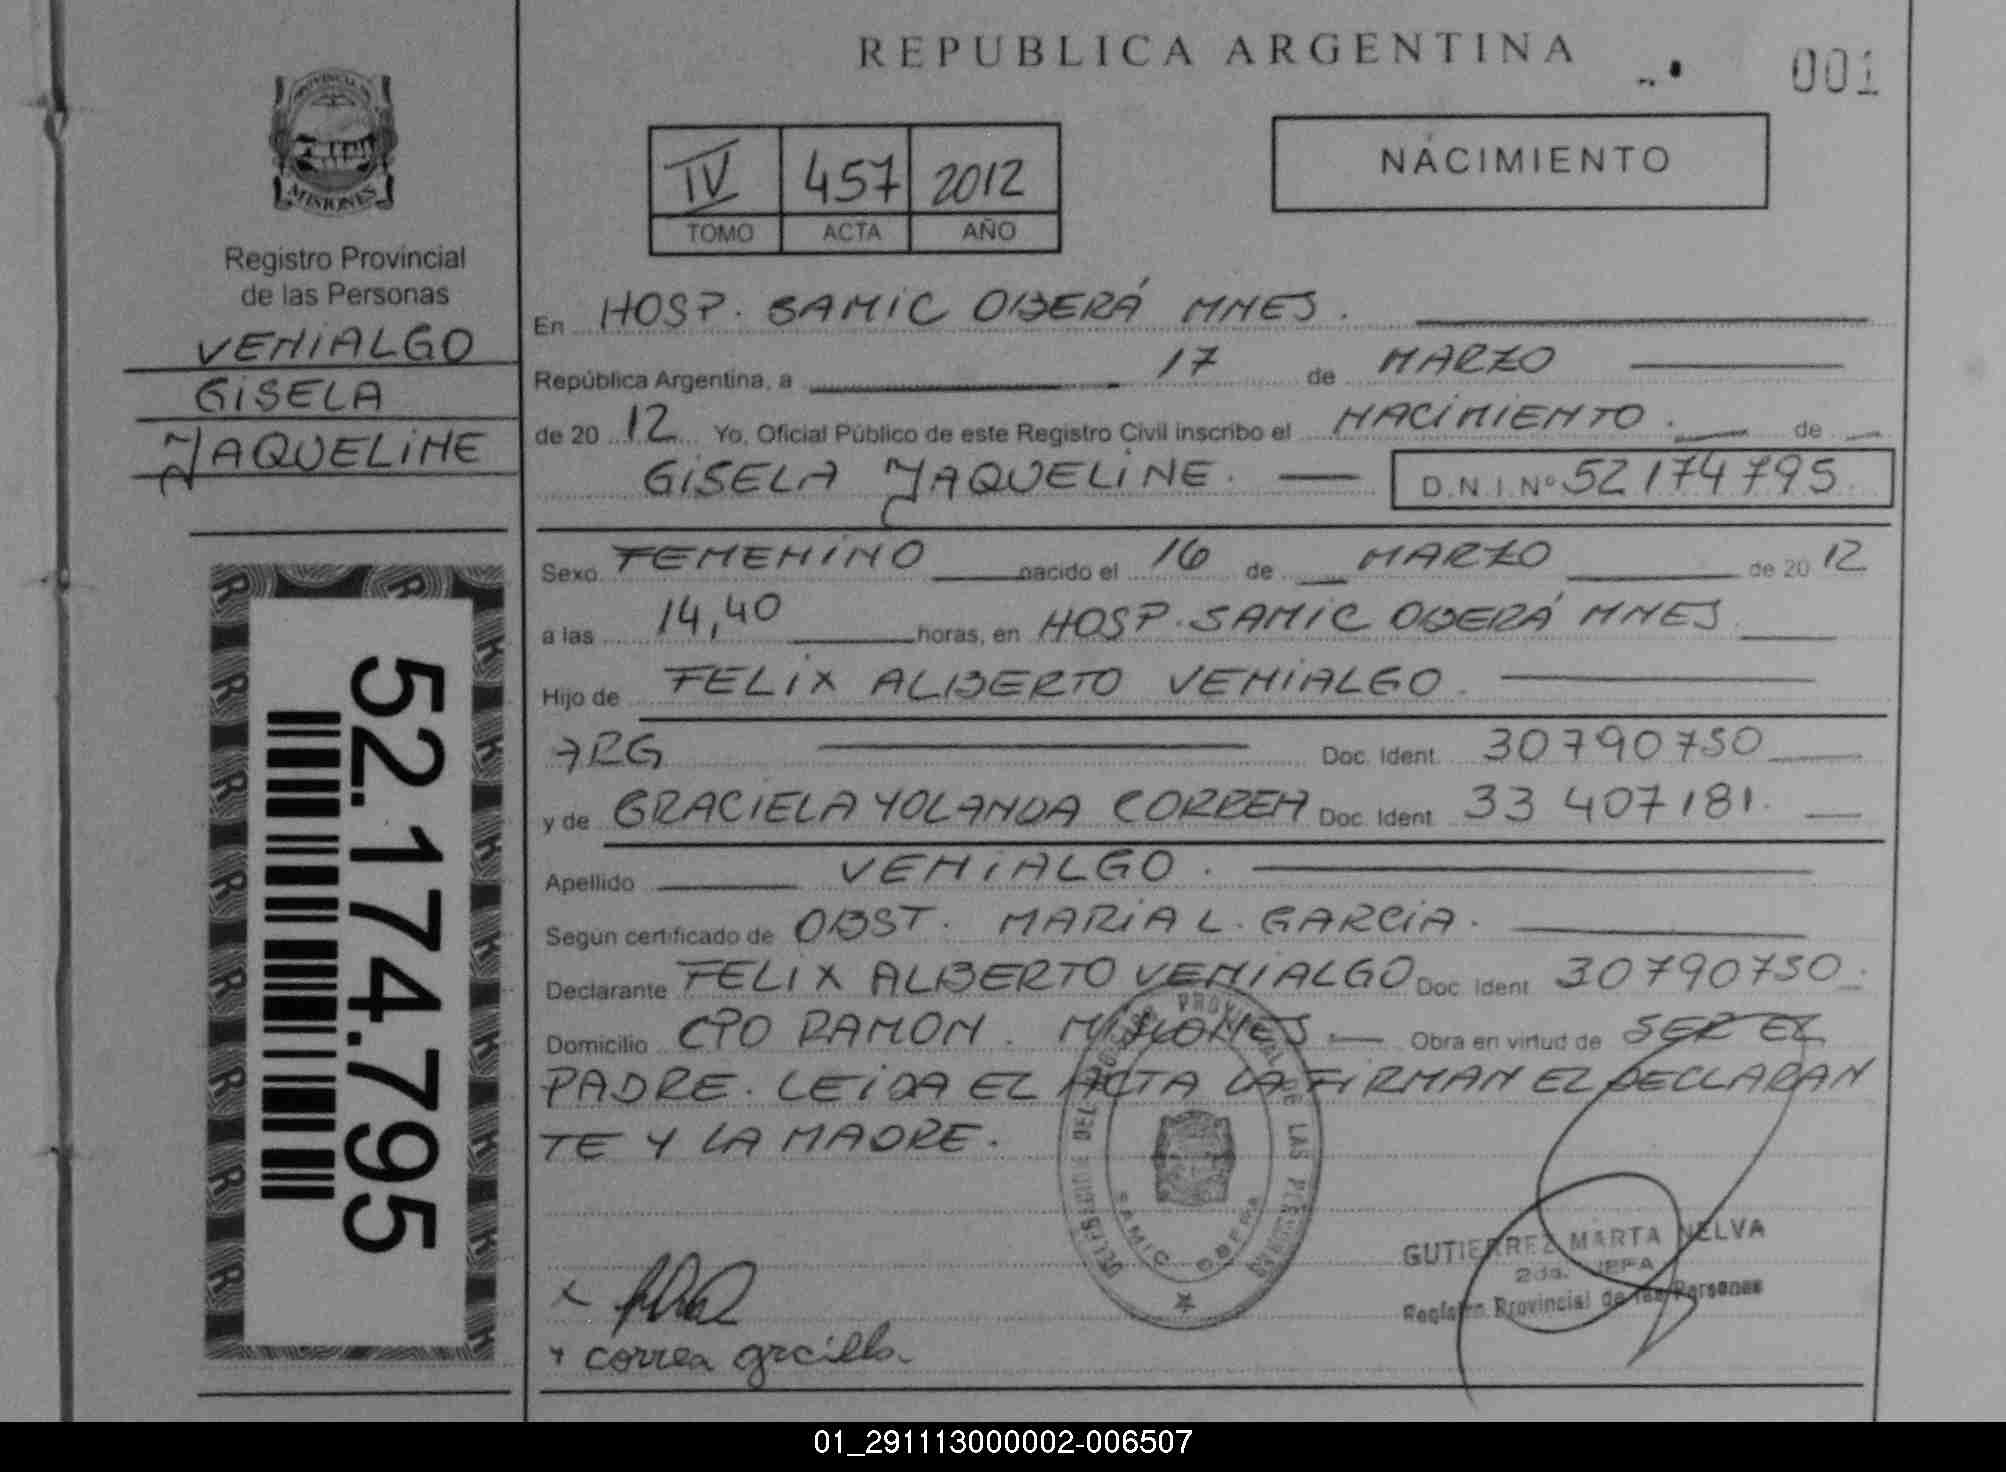 REPUBLICA ARGENTINA
001
PROVINCIA DE
MISIONES
Registro Provincial
de las Personas
VENIALGO
GISELA
JAQUELINE
52.174.795
IV 457 2012
TOMO ACTA AÑO
NACIMIENTO
En HOSP. SAMIC OBERÁ MNES.
República Argentina, a 17 de MARZO
de 20 12 Yo, Oficial Público de este Registro Civil inscribo el NACIMIENTO. de
GISELA JAQUELINE. D.N.I. Nº 52174795
Sexo FEMENINO nacido el 16 de MARZO de 20 12
a las 14,40 horas, en HOSP. SAMIC OBERÁ MNES
Hijo de FELIX ALBERTO VENIALGO.
ARG Doc. Ident. 30790750
y de GRACIELA YOLANDA CORREA Doc. Ident. 33 407181.
Apellido VENIALGO.
Según certificado de OBST. MARIA L. GARCIA.
Declarante FELIX ALBERTO VENIALGO Doc. Ident. 30790750.
Domicilio CPO RAMON. MISIONES. Obra en virtud de SER EL
PADRE. LEIDA EL ACTA LA FIRMAN EL DECLARAN
TE Y LA MADRE.
DELEGACION DEL REGISTRO PROVINCIAL DE LAS PERSONAS
SAMIC OBERA
GUTIERREZ MARTA NELVA
2da. JEFA
Registro Provincial de las Personas
x
+ correa grciella
01_291113000002-006507